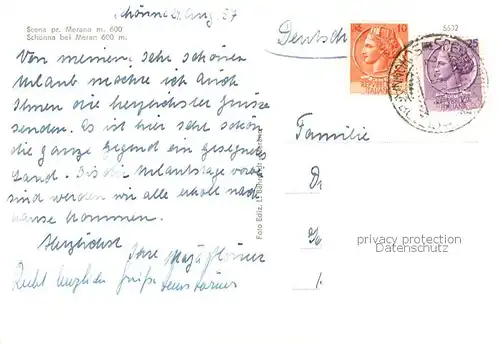 Schönna 21. Aug. 57
Scena pr. Merano m. 600
Schönna bei Meran 600 m.
Von meinem, sehr schönen
Urlaub möchte ich auch
Ihnen die herzlichsten Grüsse
senden. Es ist hier sehr schön
die ganze Gegend ein gesegnetes
Land. Bis die Urlaubstage vorbei
sind werden wir alle erholt nach
hause kommen.
Herzlichst Ihre
Recht herzliche Grüße
Foto Ediz.
Deutsch
10
25
5532
Familie
privacy protection
Datenschutz